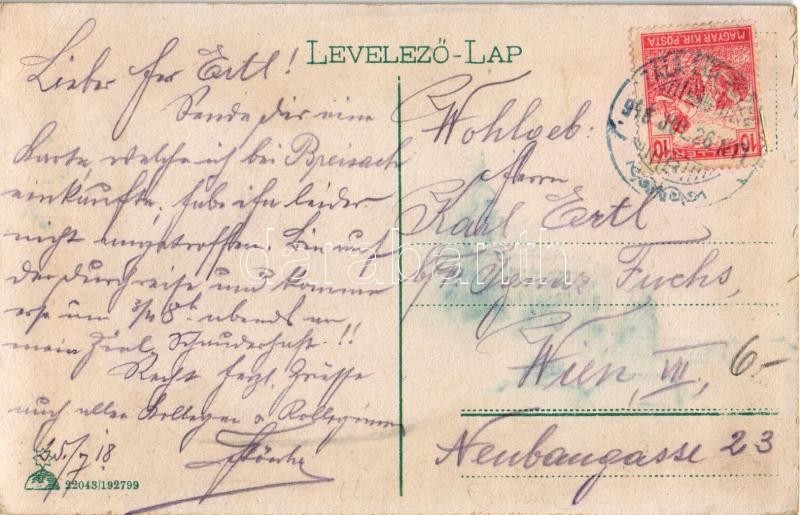 LEVELEZŐ-LAP
Lieber Herr Ertl!
Sende dir eine
Karte, welche ich bei Breisach
einkaufte, habe ihn leider
nicht angetroffen. Bin auf
der Durchreise und komme
erst um 3/4 8h abends an
mein Ziel. Schauderhaft!!
Recht herzl. Grüsse
auch allen Kollegen u Kolleginnen
25./7 18
22043/192799
Wohlgeb:
Herrn
Karl Ertl
b/ Ignaz Fuchs,
Wien, VII,
Neubaugasse 23
6.-
MAGYAR KIR. POSTA
10
10
darabanth